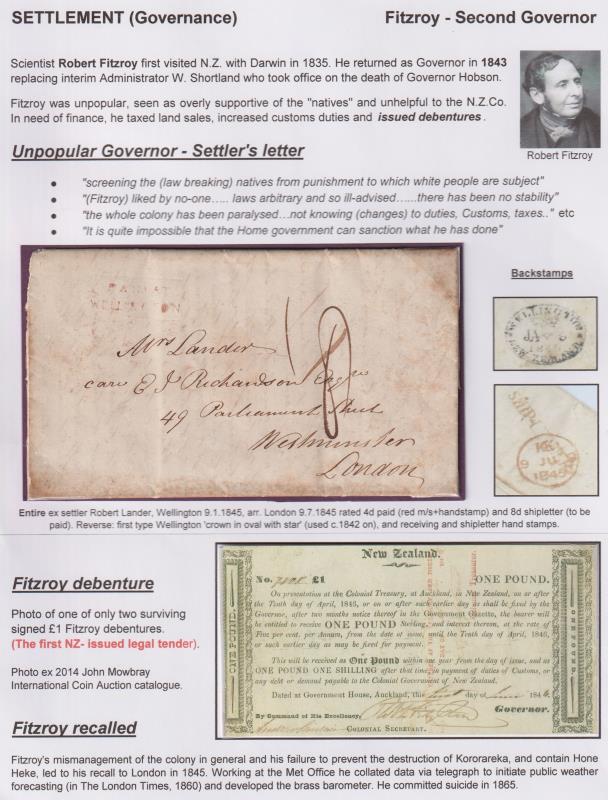 SETTLEMENT (Governance)
Fitzroy - Second Governor
Scientist Robert Fitzroy first visited N.Z. with Darwin in 1835. He returned as Governor in 1843
replacing interim Administrator W. Shortland who took office on the death of Governor Hobson.
Fitzroy was unpopular, seen as overly supportive of the "natives" and unhelpful to the N.Z.Co.
In need of finance, he taxed land sales, increased customs duties and issued debentures.
Robert Fitzroy
Unpopular Governor - Settler's letter
• "screening the (law breaking) natives from punishment to which white people are subject"
• "(Fitzroy) liked by no-one….. laws arbitrary and so ill-advised……there has been no stability"
• "the whole colony has been paralysed…not knowing (changes) to duties, Customs, taxes.." etc
• "It is quite impossible that the Home government can sanction what he has done"
Backstamps
PAID AT
WELLINGTON
Mrs Lander
care E J Richardson Esqre
49 Parliament Street
Westminster
London
8
WELLINGTON
JA
NEW ZEALAND
SHIP
KK
9 JU
1845
Entire ex settler Robert Lander, Wellington 9.1.1845, arr. London 9.7.1845 rated 4d paid (red m/s+handstamp) and 8d shipletter (to be
paid). Reverse: first type Wellington 'crown in oval with star' (used c.1842 on), and receiving and shipletter hand stamps.
Fitzroy debenture
Photo of one of only two surviving
signed £1 Fitzroy debentures.
(The first NZ- issued legal tender).
Photo ex 2014 John Mowbray
International Coin Auction catalogue.
New Zealand.
No. £1 ONE POUND.
On presentation at the Colonial Treasury, at Auckland, in New Zealand, on or after
the Tenth day of April, 1845, or on or after such earlier day as shall be fixed by the
Governor, after two months notice thereof in the Government Gazette, the bearer will
be entitled to receive ONE POUND Sterling, and interest thereon, at the rate of
Five per cent. per Annum, from the date of issue, until the Tenth day of April, 1845,
or such earlier day as may be fixed for payment.
This will be received as One Pound within one year from the day of issue, and as
ONE POUND ONE SHILLING after that time in payment of duties of Customs, or
any debt or demand payable to the Colonial Government of New Zealand.
Dated at Government House, Auckland, this first day of June 184
Governor.
By Command of His Excellency,
COLONIAL SECRETARY.
ONE POUND.
ONE POUND.
Fitzroy recalled
Fitzroy's mismanagement of the colony in general and his failure to prevent the destruction of Kororareka, and contain Hone
Heke, led to his recall to London in 1845. Working at the Met Office he collated data via telegraph to initiate public weather
forecasting (in The London Times, 1860) and developed the brass barometer. He committed suicide in 1865.